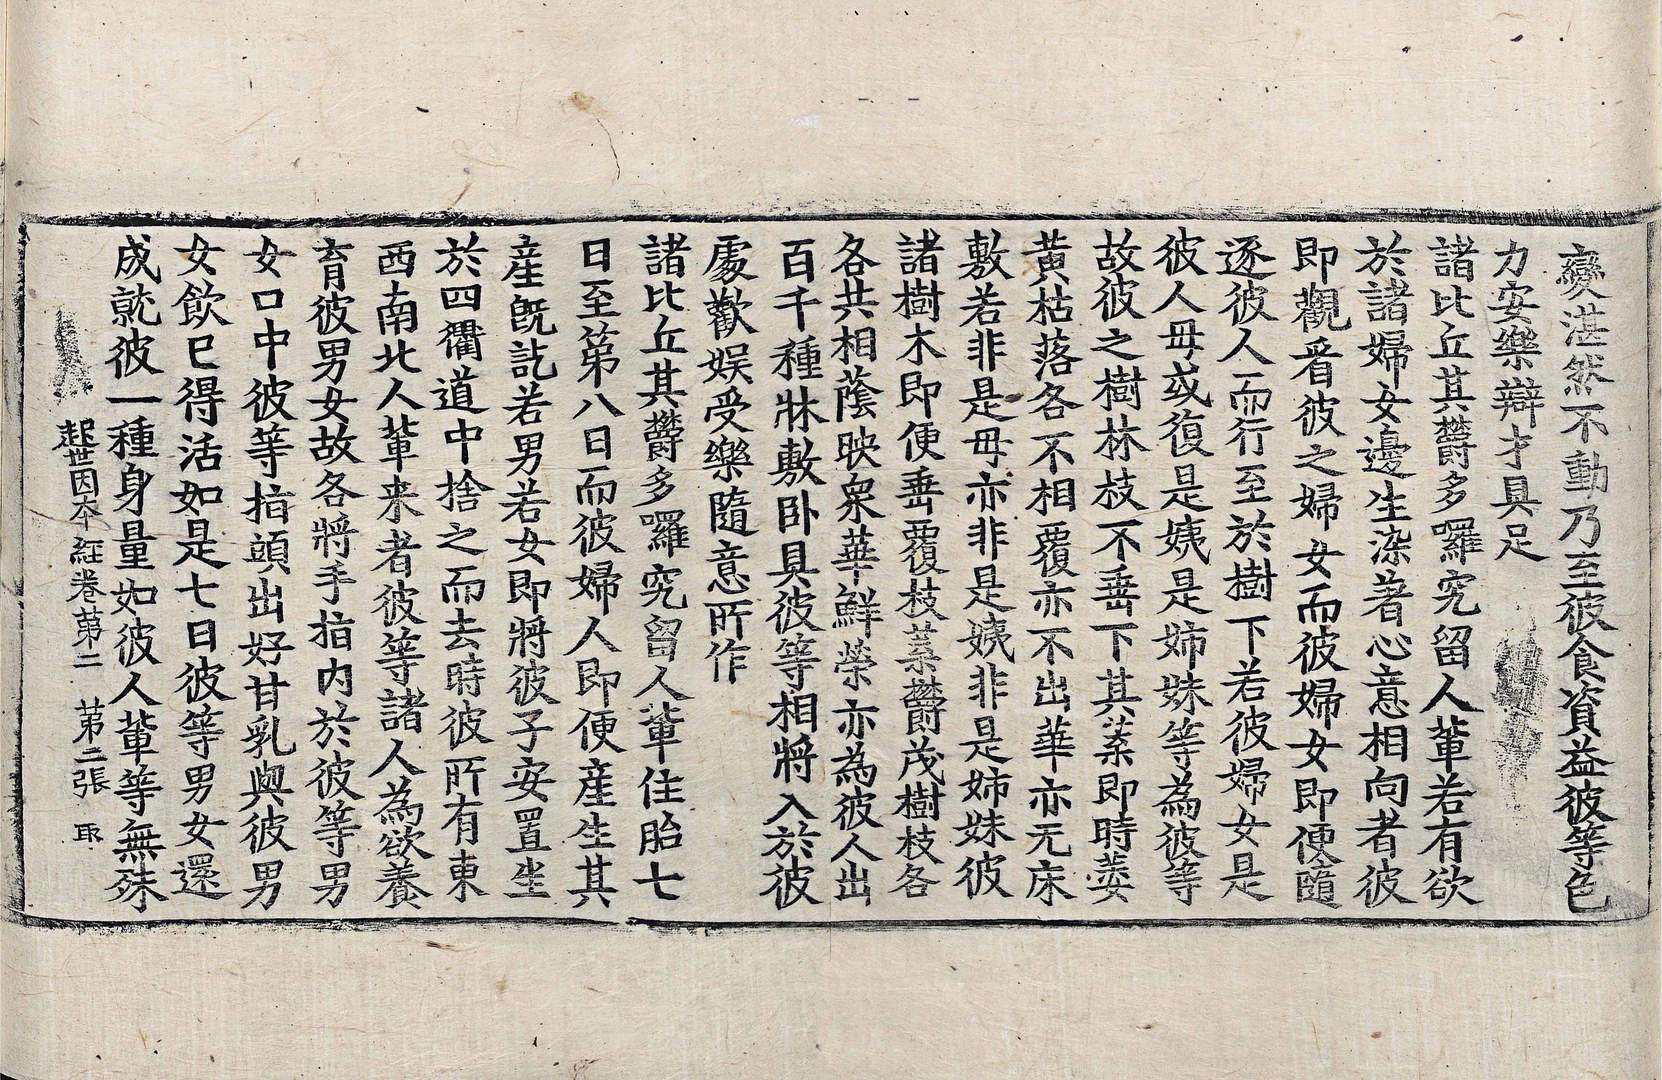 變湛然不動乃至彼食資益彼等色
力安樂辯才具足
諸比丘其欝多囉究留人輩若有欲
於諸婦女邊生染著心意相向者彼
即觀看彼之婦女而彼婦女即便隨
逐彼人而行至於樹下若彼婦女是
彼人母或復是姨是姉妹等為彼等
故彼之樹林枝不垂下其葉即時萎
黃枯落各不相覆亦不出華亦无床
敷若非是母亦非是姨非是姉妹彼
諸樹木即便垂覆枝葉欝茂樹枝各
各共相蔭映衆華鮮榮亦為彼人出
百千種牀敷卧具彼等相將入於彼
處歡娱受樂隨意所作
諸比丘其欝多囉究留人輩住胎七
日至第八日而彼婦人即便產生其
產旣訖若男若女即將彼子安置坐
於四衢道中捨之而去時彼所有東
西南北人輩来者彼等諸人為欲養
育彼男女故各將手指内於彼等男
女口中彼等指頭出好甘乳與彼男
女飲已得活如是七日彼等男女還
成就彼一種身量如彼人輩等無殊
起世因本經卷苐二　苐二張　取